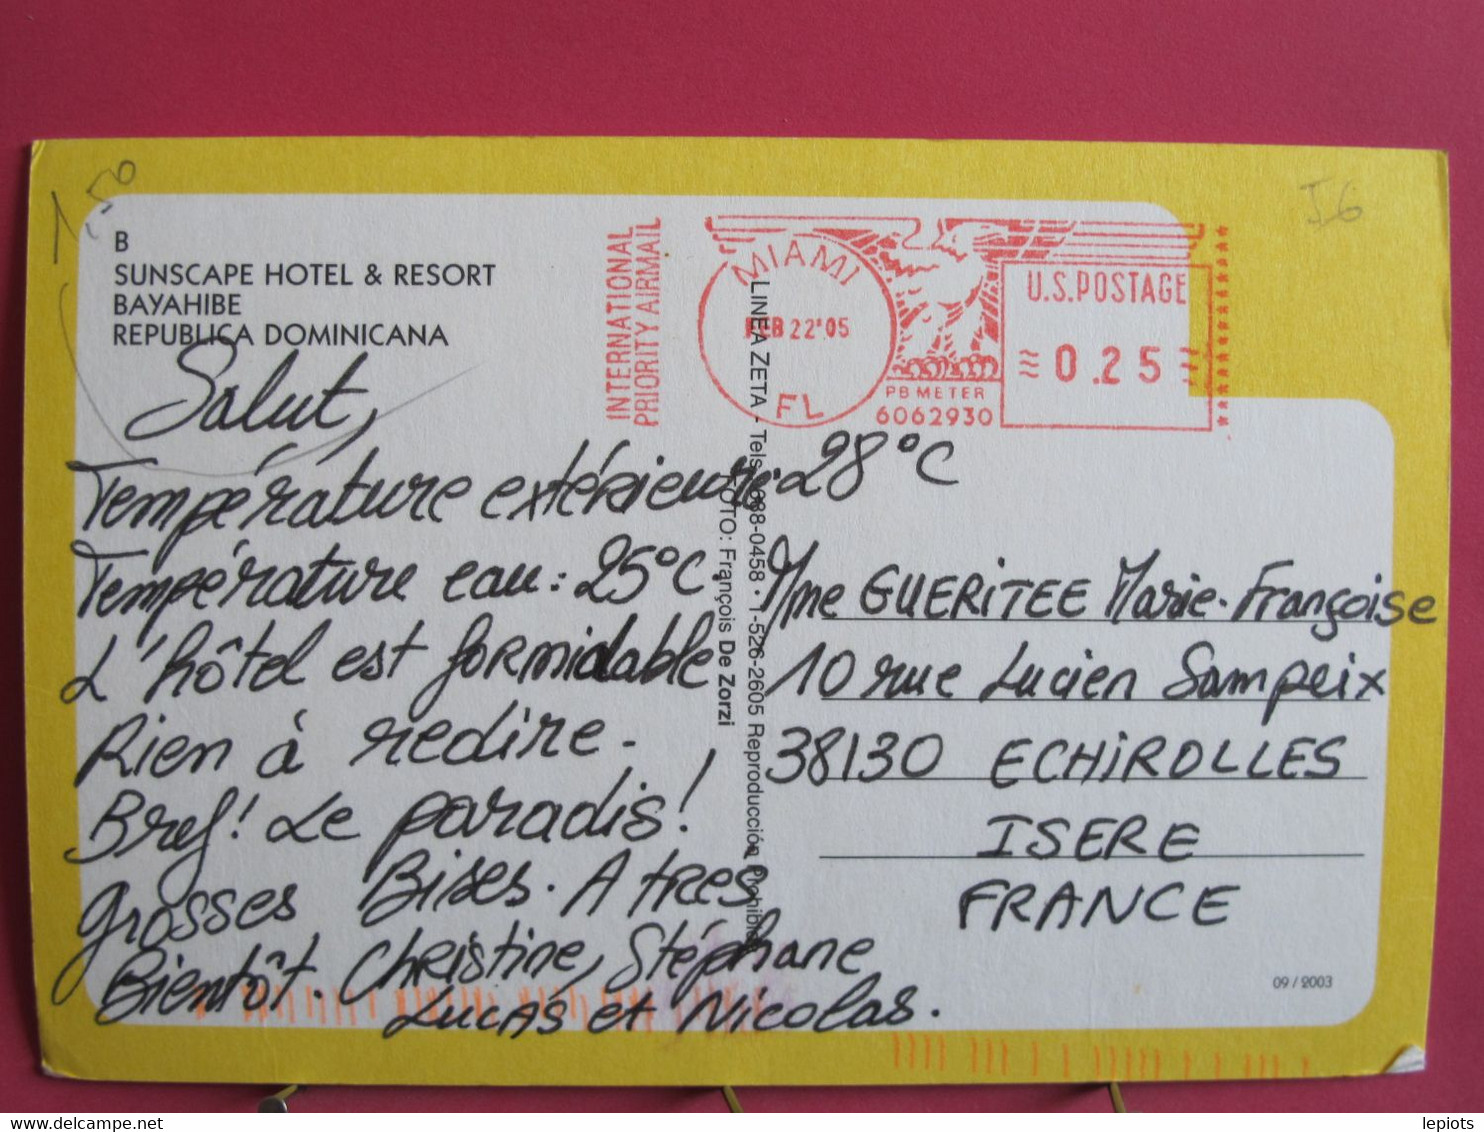 1,50
I6
B
SUNSCAPE HOTEL & RESORT
BAYAHIBE
REPUBLICA DOMINICANA
INTERNATIONAL
PRIORITY AIRMAIL
MIAMI
FEB 22'05
FL
PB METER
6062930
U.S.POSTAGE
0.25
Salut,
Température extérieure: 28°C
Température eau: 25°C.
L'hôtel est formidable
Rien à redire.
Bref! Le paradis!
Grosses Bises. A tres
Bientôt. Christine, Stéphane
Lucas et Nicolas.
LINEA ZETA - Tels. 688-0458 • 1-526-2605 Reproducción Prohibida
FOTO: François De Zorzi
Mme GUERITEE Marie-Françoise
10 rue Lucien Sampeix
38130 ECHIROLLES
ISERE
FRANCE
09 / 2003
lepiots